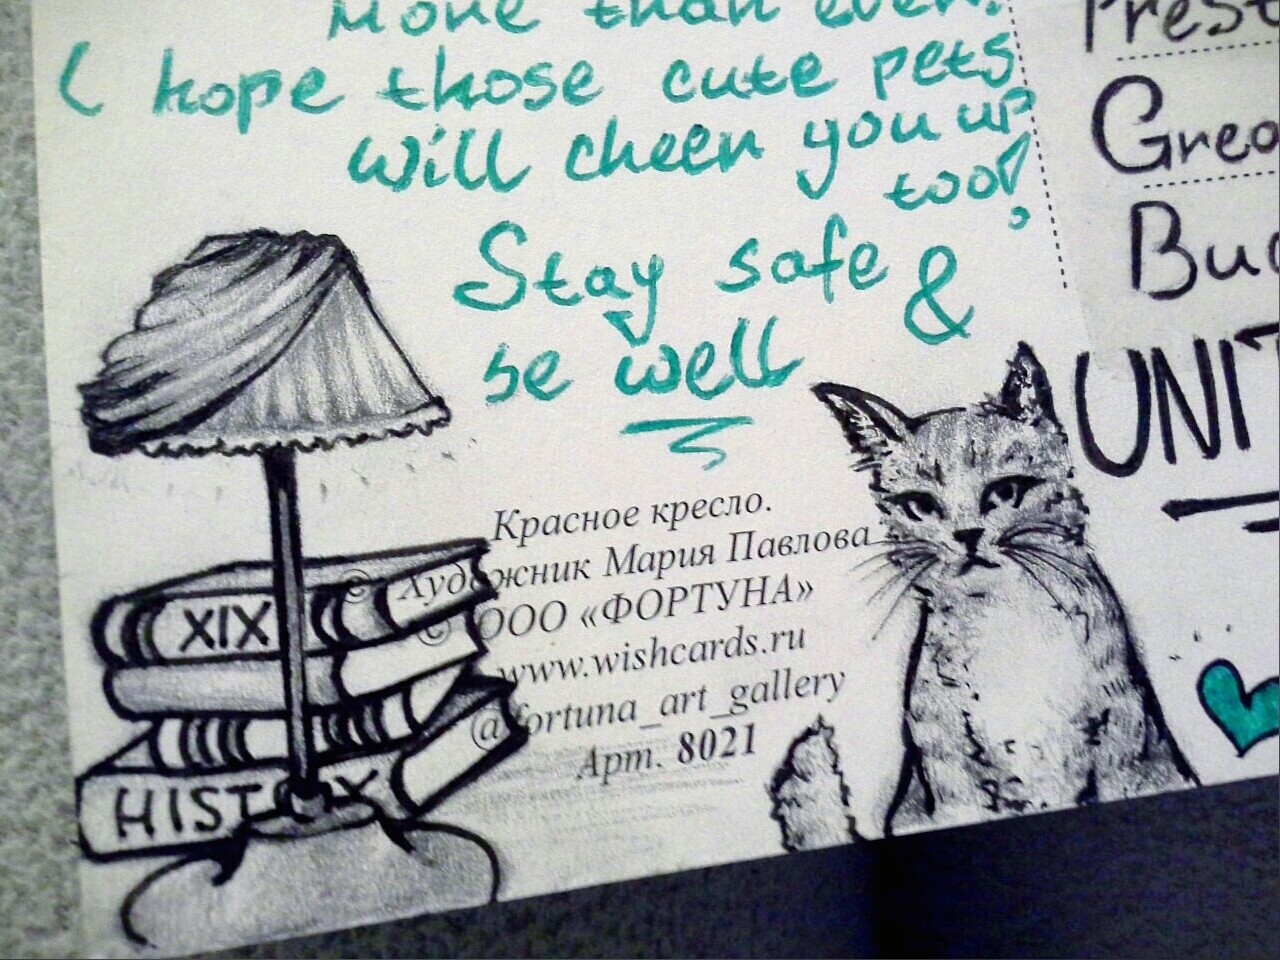 More than ever!
I hope those cute pets
will cheer you up
too!
Stay safe &
be well
Красное кресло.
© Художник Мария Павлова
© ООО «ФОРТУНА»
www.wishcards.ru
@fortuna_art_gallery
Арт. 8021
XIX
HISTORY
Prest
Grea
Buc
UNIT